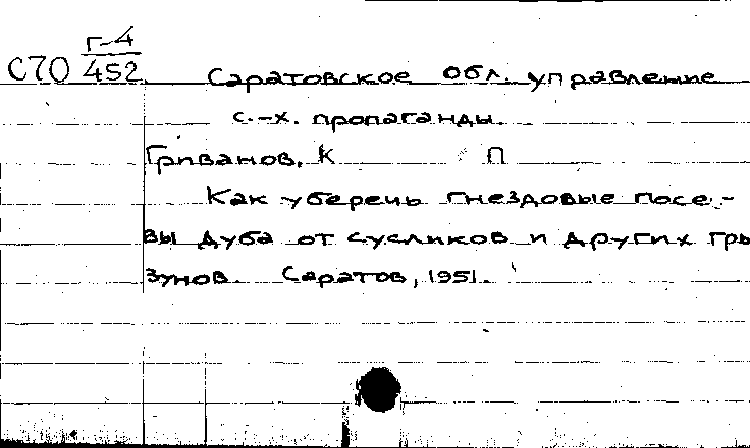 Г-4
С70 452 Саратовское обл. управление
с.-х. пропаганды.
Гриванов, К П
Как уберечь гнездовые посе-
вы дуба от сусликов и других гры
зунов. Саратов, 1951.